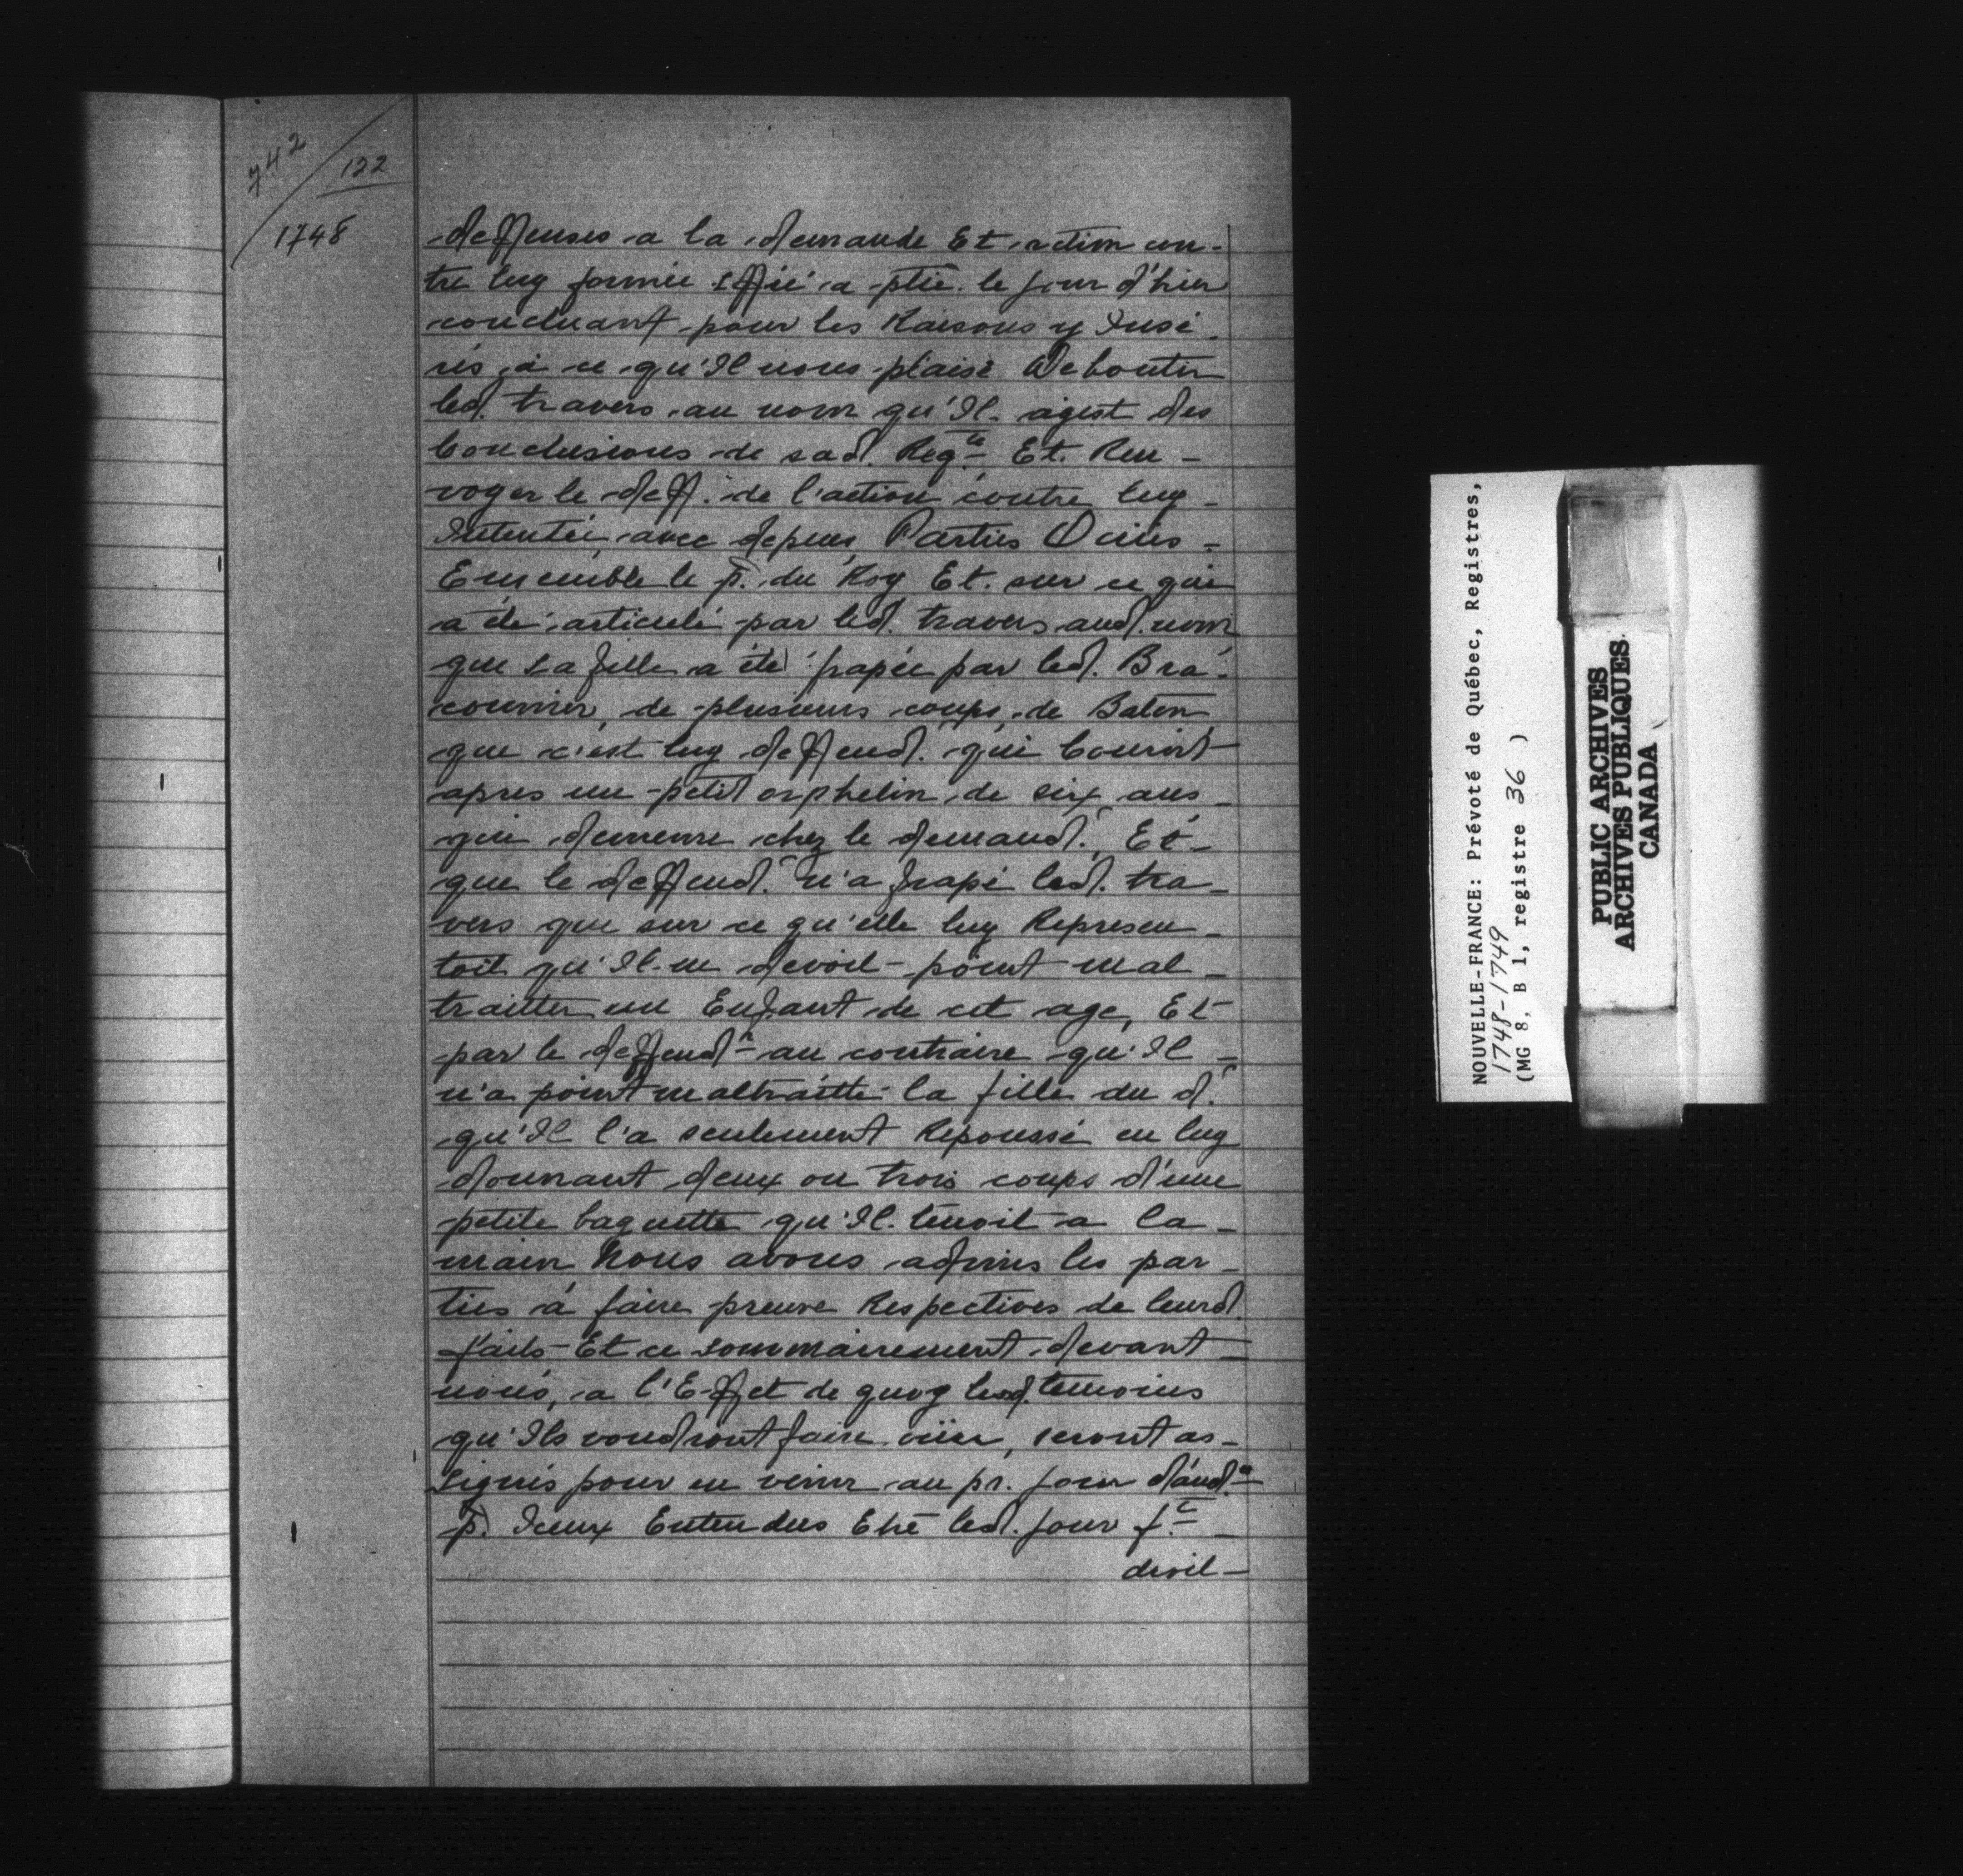 742
122
1748
deffenses a la demande Et action con-
tre luy formée siffié a ptie. le jour d'hier
concluant pour les Raisons y Insé-
rés, à ce qu'Il nous plaise Debouter
led. travers au nom qu'Il agist des
Conclusions de sad. Reqte Et Ren-
voyer le deff. de l'action contre luy
Intentée, avec depens, Parties Ouiës-
Ensemble le p. du Roy Et sur ce qui
a été articulé par led. travers aud. nom
que sa fille a été frapée par led. Bra-
connier, de plusieurs coups de Baton
que c'est luy deffend. qui Couroit
apres un petit orphelin de six ans-
qui demeure chez le demand. Et-
que le deffend. n'a frapé lad. tra-
vers que sur ce qu'elle luy Represen-
toit qu'Il ne devoit point mal-
traitter un Enfant de cet age, Et
par le deffendr au contraire qu'Il -
n'a point maltraitté la fille du d.
qu'Il l'a seulement Repoussé en luy
donnant deux ou trois coups d'une
petite baguette qu'Il tenoit a la-
main Nous avons admis les par-
ties à faire preuve Respectives de leursd.
faits Et ce sommairement devant-
nous, a l'Effet de quoy lesd. temoins
qu'Ils voudront faire oüir, seront as-
signés pour en venir au pr. jour d'aud.ce
p. Iceux Entendus Etre led. jour f.c -
droit-
NOUVELLE-FRANCE: Prévoté de Québec, Registres,
1748-1749
(MG 8, B 1, registre 36 )
PUBLIC ARCHIVES
ARCHIVES PUBLIQUES
CANADA